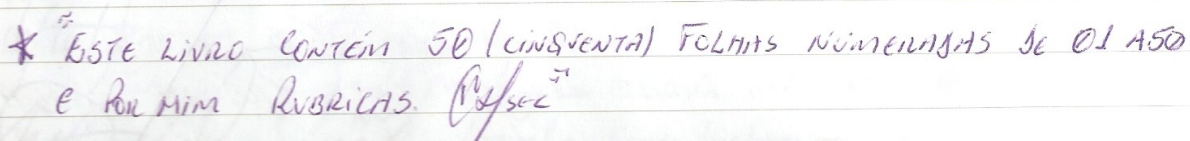 * "ESTE LIVRO CONTÉM 50 (CINQUENTA) FOLHAS NUMERADAS DE 01 A 50
E POR MIM RUBRICAS. "